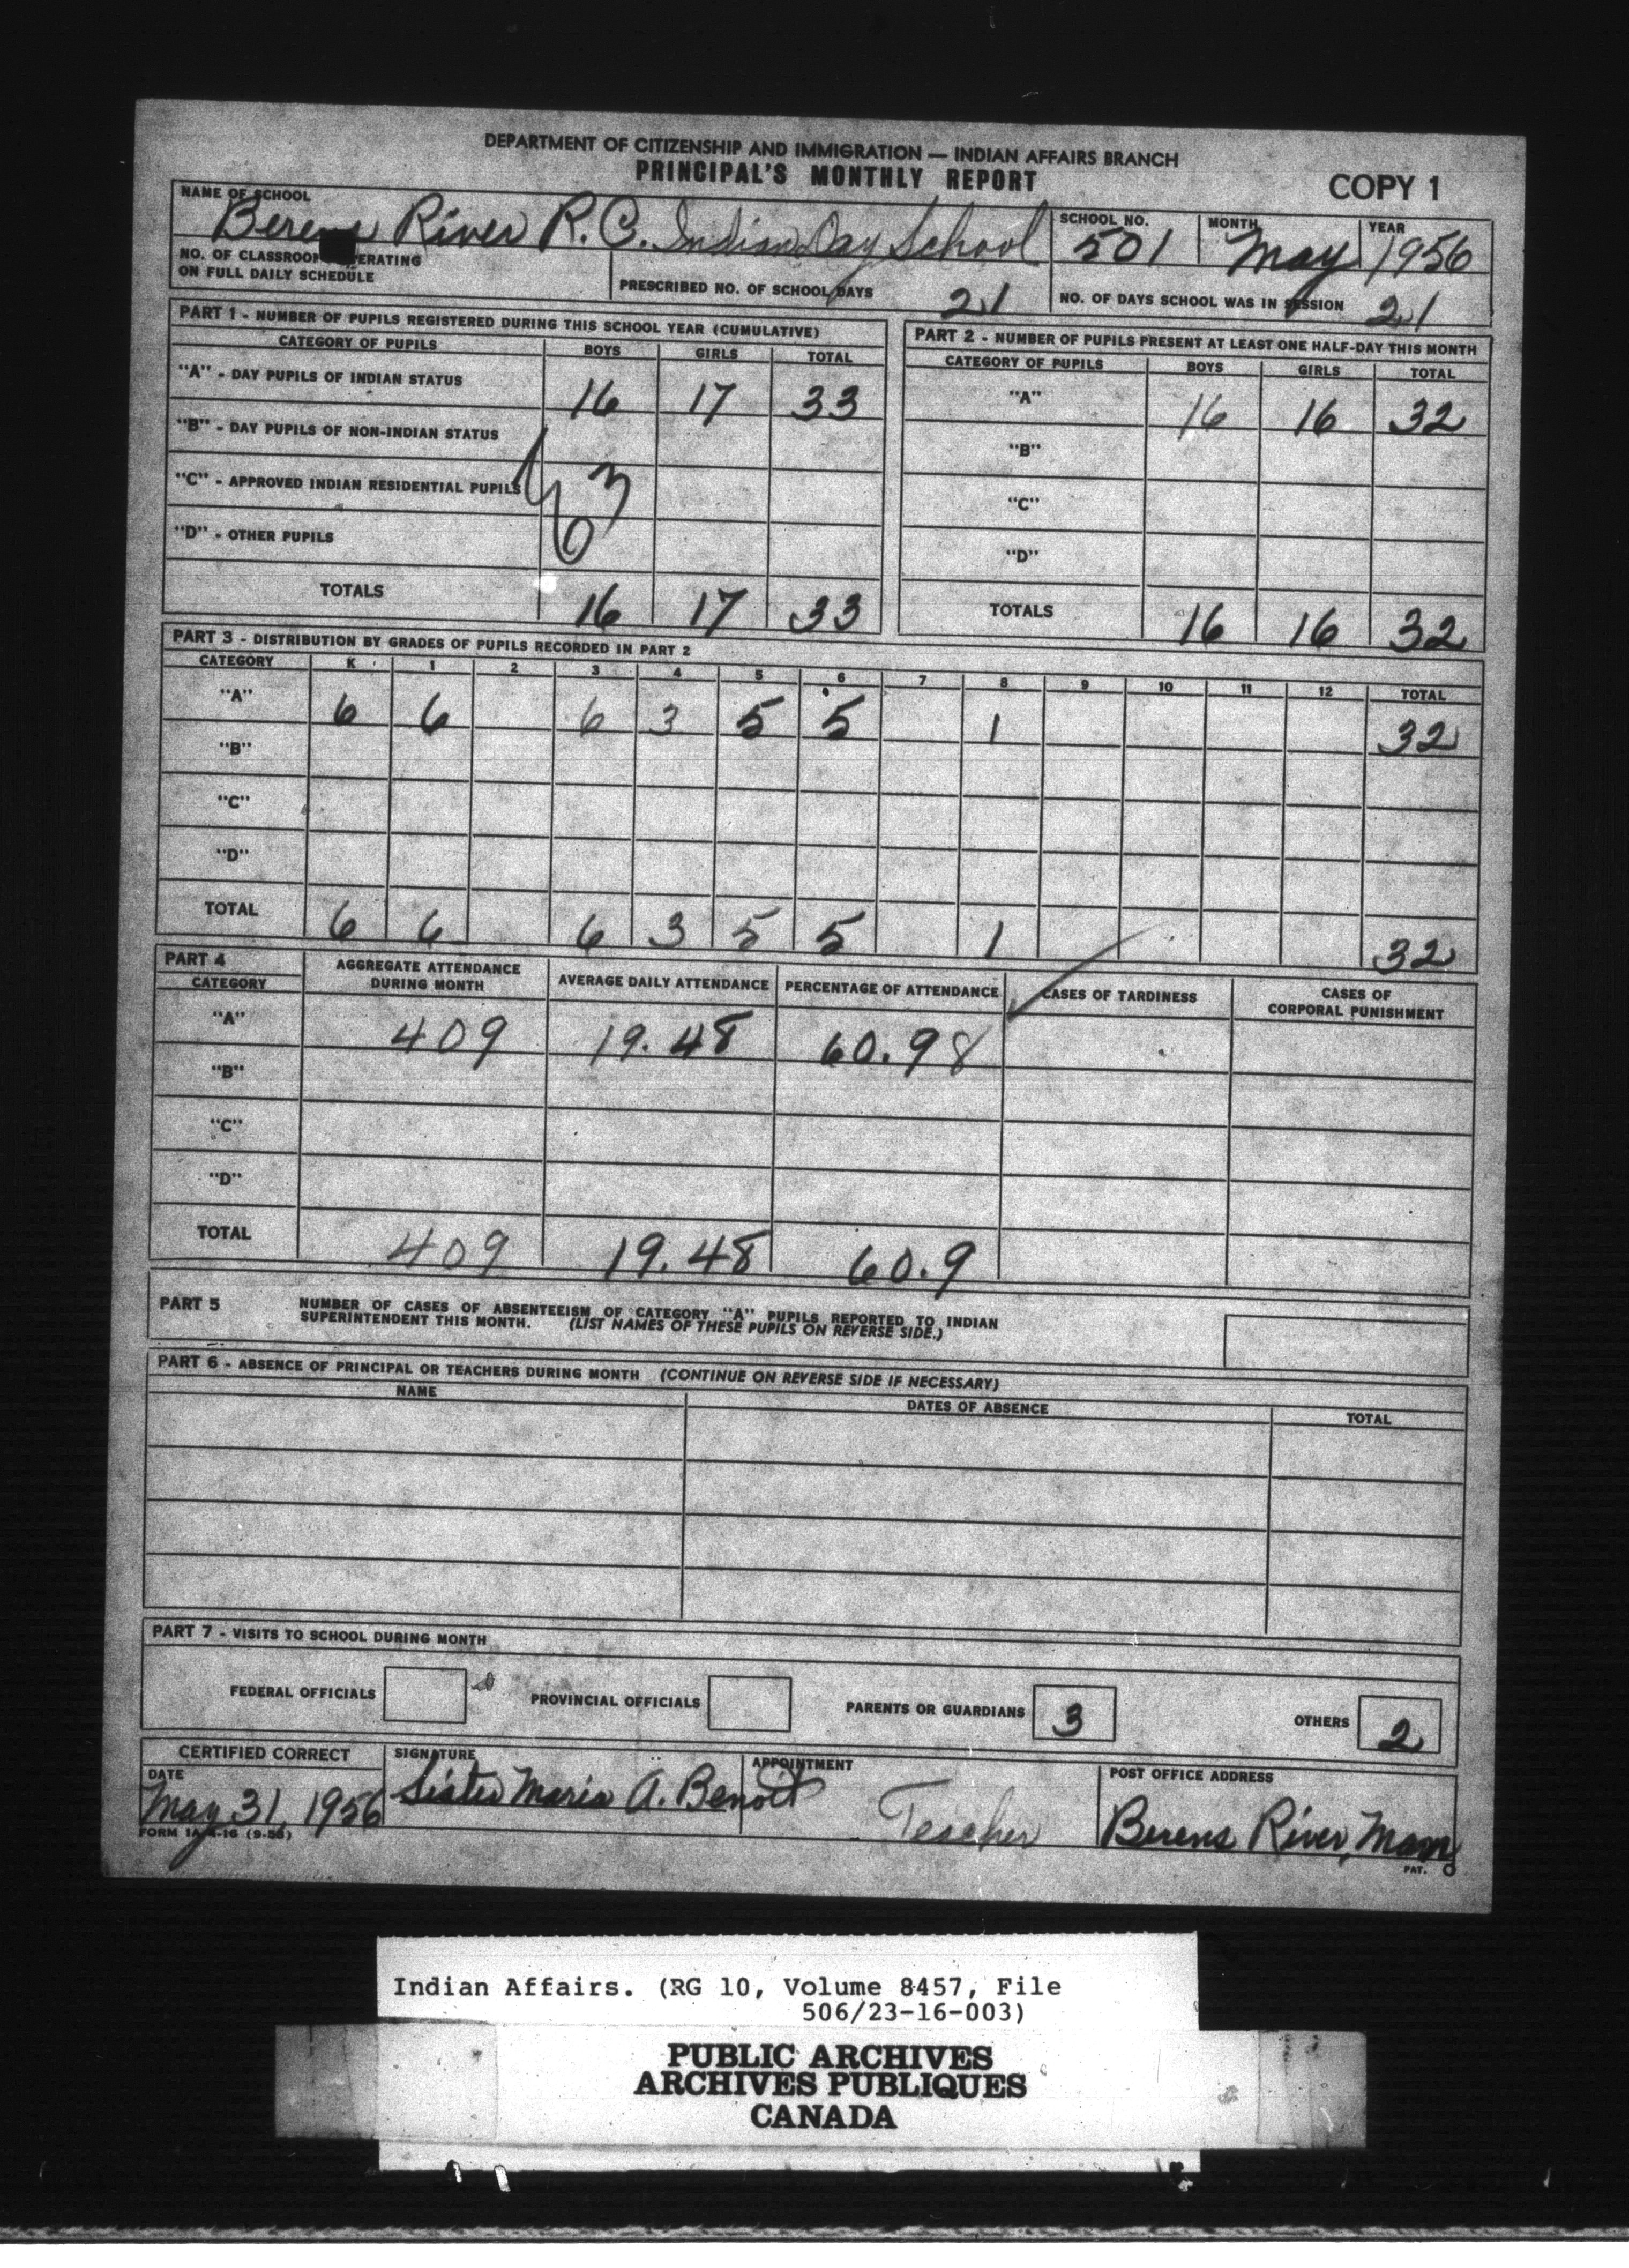 DEPARTMENT OF CITIZENSHIP AND IMMIGRATION — INDIAN AFFAIRS BRANCH
PRINCIPAL'S MONTHLY REPORT
COPY 1
NAME OF SCHOOL Berens River R.C. Indian Day School
SCHOOL NO. 501
MONTH May
YEAR 1956
NO. OF CLASSROOMS OPERATING
ON FULL DAILY SCHEDULE
PRESCRIBED NO. OF SCHOOL DAYS 21
NO. OF DAYS SCHOOL WAS IN SESSION 21
PART 1 - NUMBER OF PUPILS REGISTERED DURING THIS SCHOOL YEAR (CUMULATIVE)
CATEGORY OF PUPILS BOYS GIRLS TOTAL
"A" - DAY PUPILS OF INDIAN STATUS 16 17 33
"B" - DAY PUPILS OF NON-INDIAN STATUS
"C" - APPROVED INDIAN RESIDENTIAL PUPILS
"D" - OTHER PUPILS
TOTALS 16 17 33
PART 2 - NUMBER OF PUPILS PRESENT AT LEAST ONE HALF-DAY THIS MONTH
CATEGORY OF PUPILS BOYS GIRLS TOTAL
"A" 16 16 32
"B"
"C"
"D"
TOTALS 16 16 32
PART 3 - DISTRIBUTION BY GRADES OF PUPILS RECORDED IN PART 2
CATEGORY K 1 2 3 4 5 6 7 8 9 10 11 12 TOTAL
"A" 6 6 6 3 5 5 1 32
"B"
"C"
"D"
TOTAL 6 6 6 3 5 5 1 32
PART 4
CATEGORY
AGGREGATE ATTENDANCE
DURING MONTH
AVERAGE DAILY ATTENDANCE
PERCENTAGE OF ATTENDANCE
CASES OF TARDINESS
CASES OF
CORPORAL PUNISHMENT
"A" 409 19.48 60.98
"B"
"C"
"D"
TOTAL 409 19.48 60.9
PART 5 NUMBER OF CASES OF ABSENTEEISM OF CATEGORY "A" PUPILS REPORTED TO INDIAN
SUPERINTENDENT THIS MONTH. (LIST NAMES OF THESE PUPILS ON REVERSE SIDE.)
PART 6 - ABSENCE OF PRINCIPAL OR TEACHERS DURING MONTH (CONTINUE ON REVERSE SIDE IF NECESSARY)
NAME DATES OF ABSENCE TOTAL
PART 7 - VISITS TO SCHOOL DURING MONTH
FEDERAL OFFICIALS PROVINCIAL OFFICIALS PARENTS OR GUARDIANS 3 OTHERS 2
CERTIFIED CORRECT
DATE May 31, 1956
SIGNATURE Sister Maria A. Benoit
APPOINTMENT Teacher
POST OFFICE ADDRESS Berens River, Man
PAT.
Indian Affairs. (RG 10, Volume 8457, File
506/23-16-003)
PUBLIC ARCHIVES
ARCHIVES PUBLIQUES
CANADA